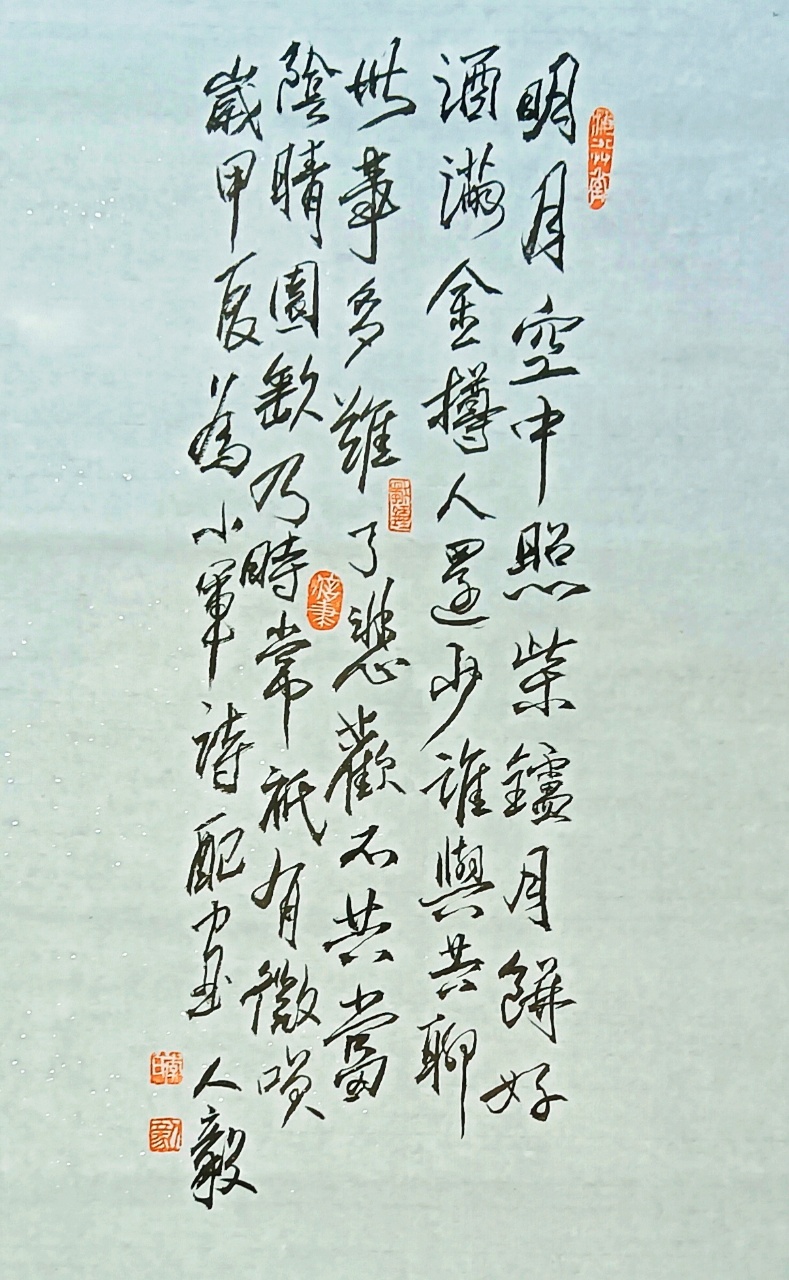 明月空中照柴鑪月餅好
酒滿金樽人還少誰與共聊
世事多難了悲歡不共當
陰晴圓缺乃時常祇有微嘆
歲甲夏為小軍詩配畫 人毅